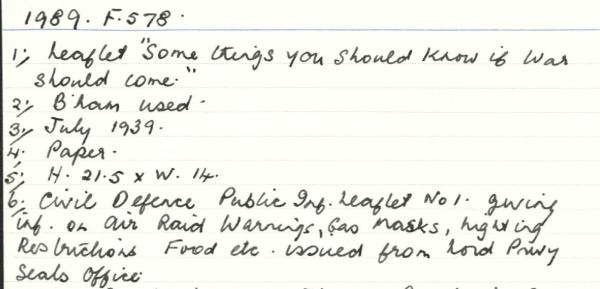 1989. F.578.
1; Leaflet "Some things you should know if War
should come."
2; B'ham used.
3; July 1939.
4. Paper.
5; H. 21.5 x W. 14.
6. Civil Defence Public Inf. Leaflet No 1. giving
inf. on Air Raid Warnings, Gas Masks, Lighting
Restrictions Food etc. issued from Lord Privy
Seals Office